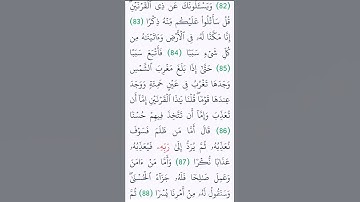 (82) وَيَسْـَٔلُونَكَ عَن ذِى ٱلْقَرْنَيْنِ
قُلْ سَأَتْلُوا۟ عَلَيْكُم مِّنْهُ ذِكْرًا (83)
إِنَّا مَكَّنَّا لَهُۥ فِى ٱلْأَرْضِ وَءَاتَيْنَـٰهُ مِن
كُلِّ شَىْءٍ سَبَبًا (84) فَأَتْبَعَ سَبَبًا
(85) حَتَّىٰٓ إِذَا بَلَغَ مَغْرِبَ ٱلشَّمْسِ
وَجَدَهَا تَغْرُبُ فِى عَيْنٍ حَمِئَةٍ وَوَجَدَ
عِندَهَا قَوْمًا قُلْنَا يَـٰذَا ٱلْقَرْنَيْنِ إِمَّآ أَن
تُعَذِّبَ وَإِمَّآ أَن تَتَّخِذَ فِيهِمْ حُسْنًا
(86) قَالَ أَمَّا مَن ظَلَمَ فَسَوْفَ
نُعَذِّبُهُۥ ثُمَّ يُرَدُّ إِلَىٰ رَبِّهِۦ فَيُعَذِّبُهُۥ
عَذَابًا نُّكْرًا (87) وَأَمَّا مَنْ ءَامَنَ
وَعَمِلَ صَـٰلِحًا فَلَهُۥ جَزَآءً ٱلْحُسْنَىٰ
وَسَنَقُولُ لَهُۥ مِنْ أَمْرِنَا يُسْرًا (88) ثُمَّ